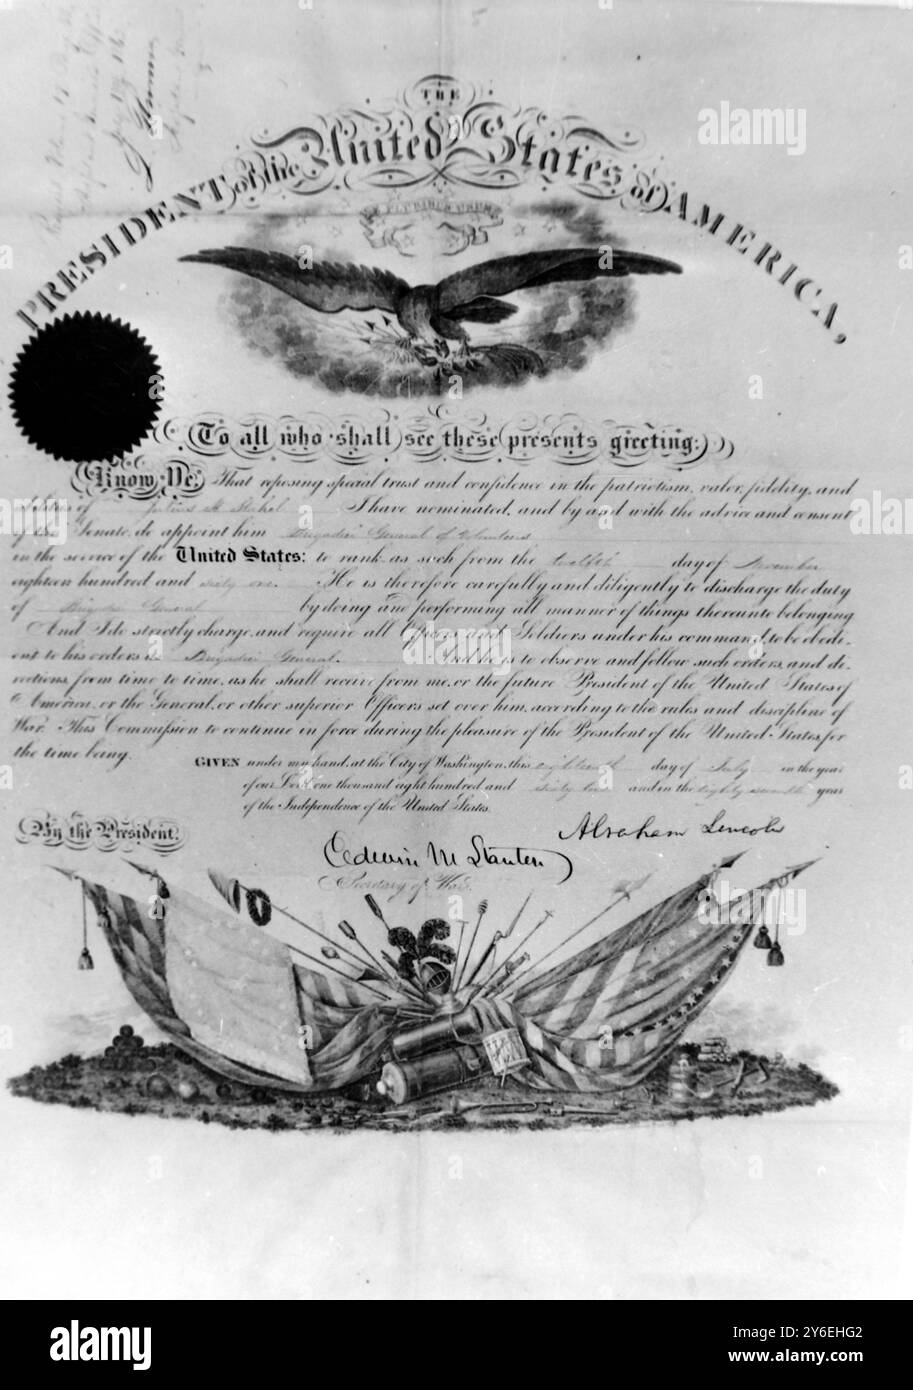 THE
PRESIDENT of the United States of AMERICA,
E PLURIBUS UNUM
To all who shall see these presents greeting:
Know Ye, That reposing special trust and confidence in the patriotism, valor, fidelity, and
abilities of Julius H. Stahel I have nominated, and by and with the advice and consent
of the Senate, do appoint him Brigadier General of Volunteers
in the service of the United States: to rank as such from the twelfth day of November
eighteen hundred and sixty one. He is therefore carefully and diligently to discharge the duty
of Brigadier General by doing and performing all manner of things thereunto belonging
And I do strictly charge, and require all Officers and Soldiers under his command, to be obedi-
ent to his orders as Brigadier General. And he is to observe and follow such orders, and di-
rections, from time to time, as he shall receive from me, or the future President of the United States of
America, or the General, or other superior Officers set over him, according to the rules and discipline of
War. This Commission to continue in force during the pleasure of the President of the United States, for
the time being.
GIVEN under my hand, at the City of Washington, this eighteenth day of July in the year
of our Lord one thousand eight hundred and sixty two and in the eighty seventh year
of the Independence of the United States.
By the President.
Abraham Lincoln
Edwin M Stanton
Secretary of War.
alamy
Image ID: 2Y6EHG2
www.alamy.com